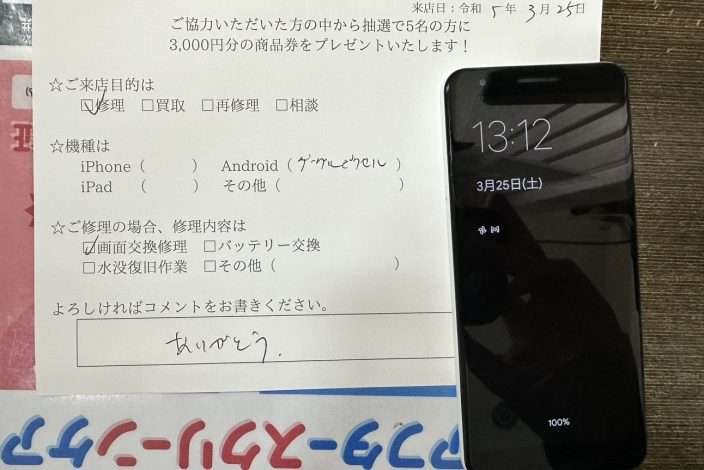 来店日：令和 5年 3月25日
ご協力いただいた方の中から抽選で5名の方に
3,000円分の商品券をプレゼントいたします！
☆ご来店目的は
☑修理 □買取 □再修理 □相談
☆機種は
iPhone（ ） Android（グーグルピクセル）
iPad （ ） その他（ ）
☆ご修理の場合、修理内容は
☑画面交換修理 □バッテリー交換
□水没復旧作業 □その他（ ）
よろしければコメントをお書きください。
ありがとう.
13:12
3月25日(土)
100%
アフタースクリーンケア